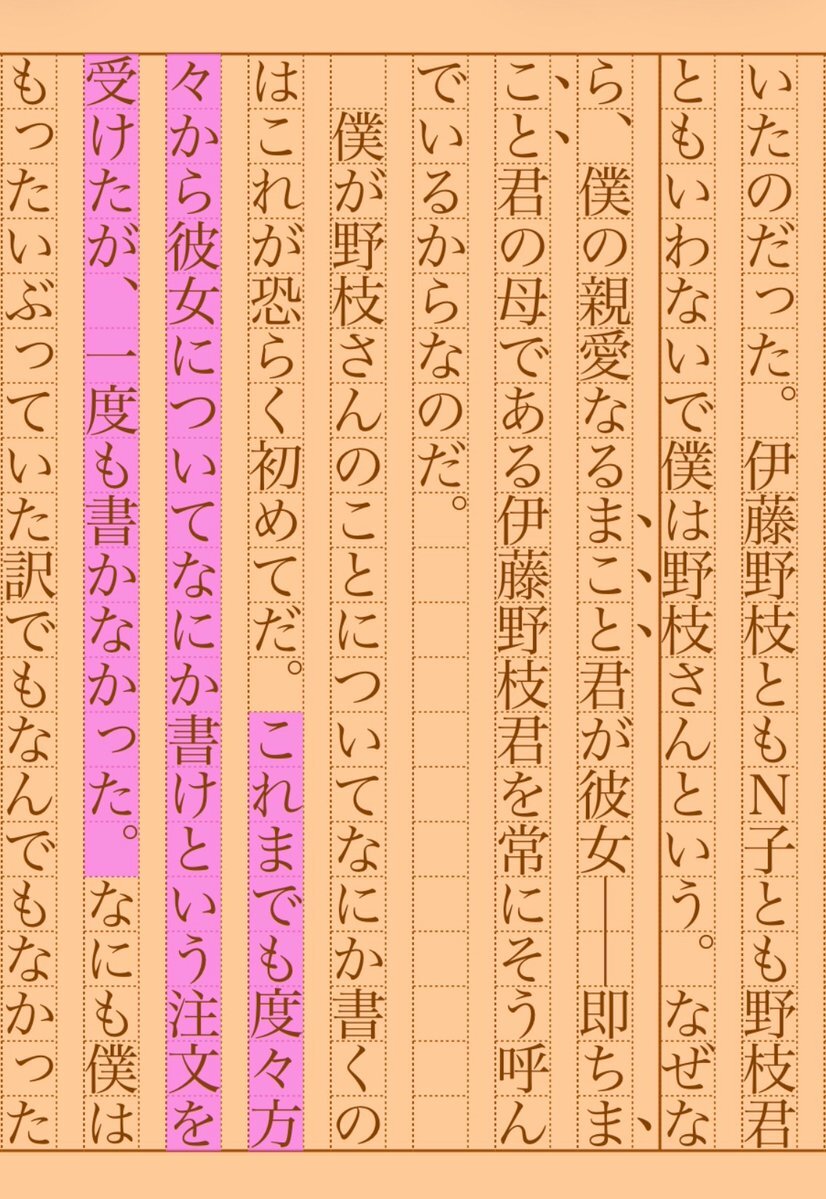 いたのだった。伊藤野枝ともN子とも野枝君
ともいわないで僕は野枝さんという。なぜな
ら、僕の親愛なるまこと君が彼女――即ちま
こと君の母である伊藤野枝君を常にそう呼ん
でいるからなのだ。
僕が野枝さんのことについてなにか書くの
はこれが恐らく初めてだ。これまでも度々方
々から彼女についてなにか書けという注文を
受けたが、一度も書かなかった。なにも僕は
もったいぶっていた訳でもなんでもなかった